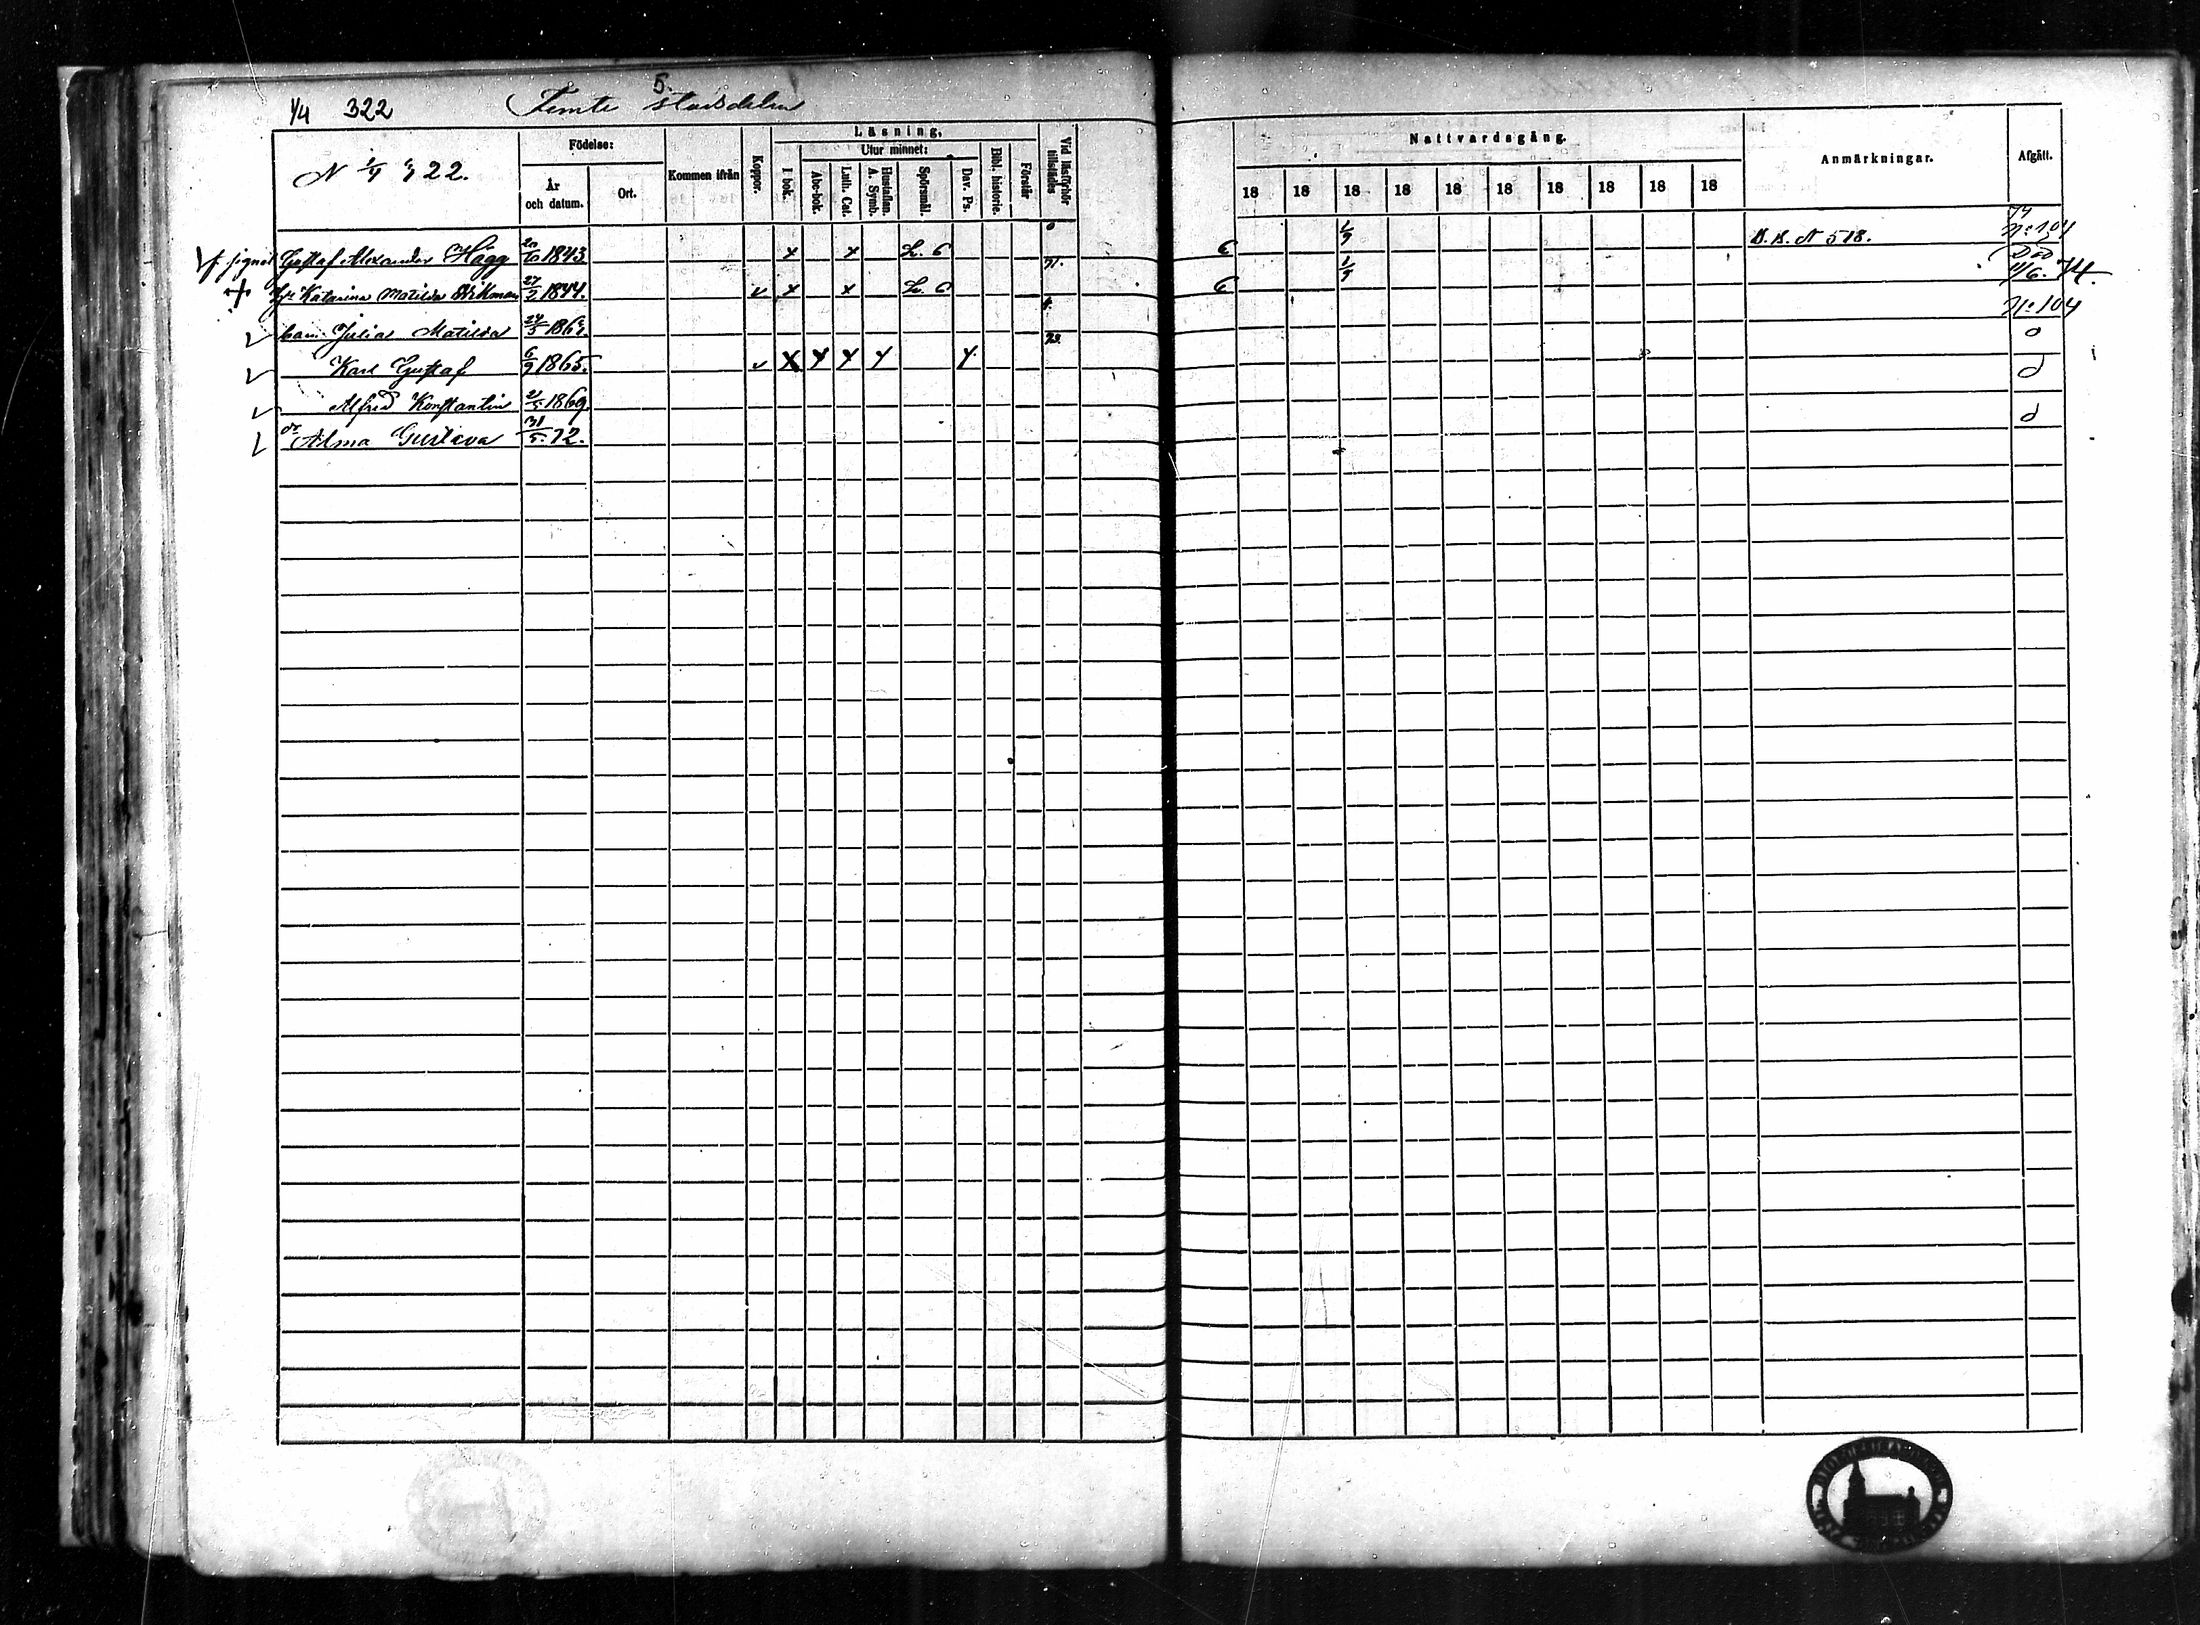 1/4 322 Femte 5. stadsdelen
N 1/4 322.
Födelse:
År och datum.
Ort.
Kommen ifrån
Koppor.
Läsning,
I bok.
Utur minnet:
Abc-bok.
Luth. Cat.
Hustaflan. A. Symb.
Spörsmål.
Dav. Ps.
Bibl. historie.
Förstår
Vid läsförhör tillstädes
Nattvardsgång.
18 18 18 18 18 18 18 18 18 18
Anmärkningar.
Afgått.
Gustaf Alexander Hägg 20/10 1843 x x L. 6 71. 6 1/9 N 518. 74 No 104
Katarina Matilda Wikman 27/2 1844. v x x 6 1/9 Död 11/6. 74.
barn: Julia Matilda No 104
Karl Gustaf 6/9 1865. v x x x x x
Alfred Konstantin 2/5 1869. d
Alma Gustava 31/5. 72. d